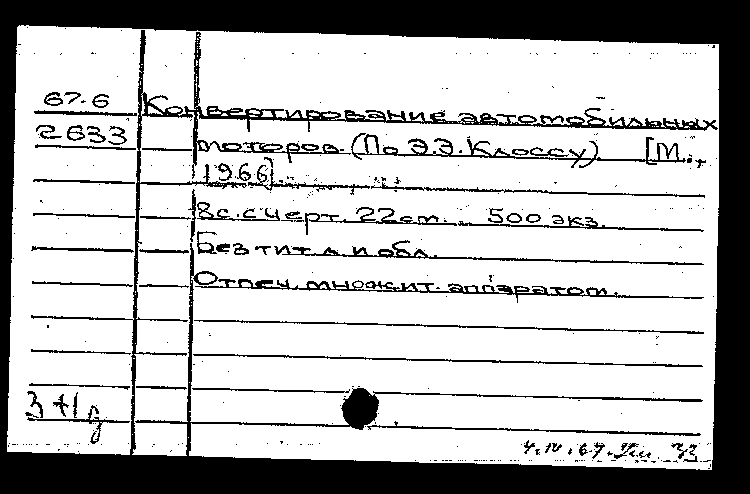 67-6 Конвертирование автомобильных
2633 моторов. (По Э.Э. Клоссу). [М.,
1966].
8с. с черт. 22см. 500 экз.
Без тит. л. и обл.
Отпеч. множит. аппаратом.
3+1д
4.IV.67.